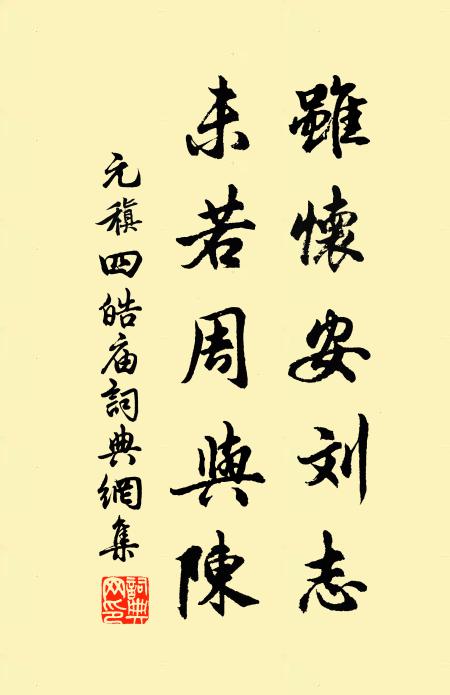 雖懷安刘志
未若周與陳
元稹四皓庙詞典網集
詞典網印